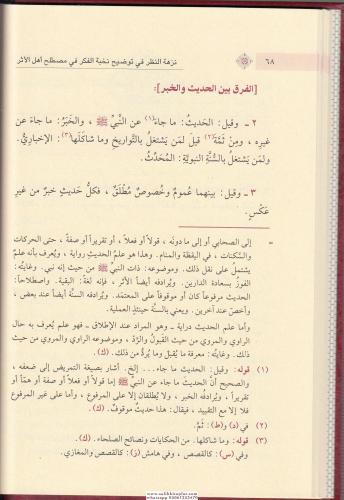 ٦٨
نزهة النظر في توضيح نخبة الفكر في مصطلح أهل الأثر
[الفرق بين الحديث والخبر]:
٢ ـ وقيل: الحَديثُ: ما جاءَ(١) عن النَّبيِّ ﷺ، والخَبَرُ: ما جاءَ عن
غيرِه، ومِنْ ثَمَّةَ(٢) قيلَ لمَن يَشتغلُ بالتَّواريخِ وما شاكَلَها(٣): الإِخباريُّ،
ولمَن يَشتغلُ بالسُّنَّةِ النبويَّةِ: المُحَدِّثُ.
٣ ـ وقيل: بينهما عُمومٌ وخُصوصٌ مُطْلَقٌ، فكلُّ حَديثٍ خبرٌ من غيرِ
عَكْسٍ.
= إلى الصحابي أو إلى ما دونَه، قولاً أو فعلاً، أو تقريراً أو صفةً، حتى الحركات
والسَّكَنات، في اليقظة والمنام. وهذا هو علم الحديث رواية، ويُعرف بأنه علم
يشتملُ على نقل ذلك. وموضوعه: ذات النبيِّ ﷺ من حيث إنه نبي. وغايتُه:
الفوزُ بسعادة الدارين. ويُرادفه أيضاً الأثر، فإنه لغةً: البقية. واصطلاحاً:
الحديث مرفوعاً كان أو موقوفاً على المعتمد. ويُرادفه السنَّة أيضاً عند بعض،
وأخصُّ عند آخرين. ويعني بالسنَّة حينئذٍ العملية.
وأما علم الحديث دراية ـ وهو المراد عند الإطلاق ـ فهو علم يُعرف به حال
الراوي والمروي من حيث القبولُ والرَّدُ، وموضوعه الراوي والمروي من حيث
ذلك. وغايتُه: معرفة ما يُقبل وما يُردُّ من ذلك. (ك).
(١) قوله: وقيل: الحديث ما جاء... إلخ. أشار بصيغة التمريض إلى ضعفه،
والصحيح أنَّ الحديث ما جاء عن النبي ﷺ إما قولاً أو فعلاً أو صفة أو همّاً أو
تقريراً، ويُرادفه الخبر، ولا يُطلقان إلا على المرفوع، وأما على غير المرفوع
فلا إلا مع التقييد، فيقال: هذا حديثٌ موقوفٌ. (ك).
(٢) في (د) و(ط): ثَمَّ.
(٣) قوله: وما شاكلها. من الحكايات ونصائح الصلحاء. (ك).
وفي (س): كالقصص، وفي هامش (ز): كالقصص والمغازي.